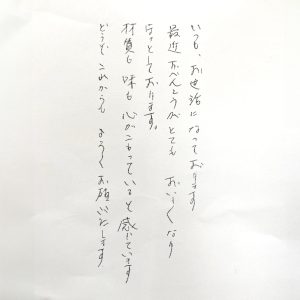 いつも、お世話になっております
最近おべんとうがとても おいしくなり
ほっとしております。
材質も 味も 心がこもっていると感じています
どうぞこれからも よろしくお願いいたします